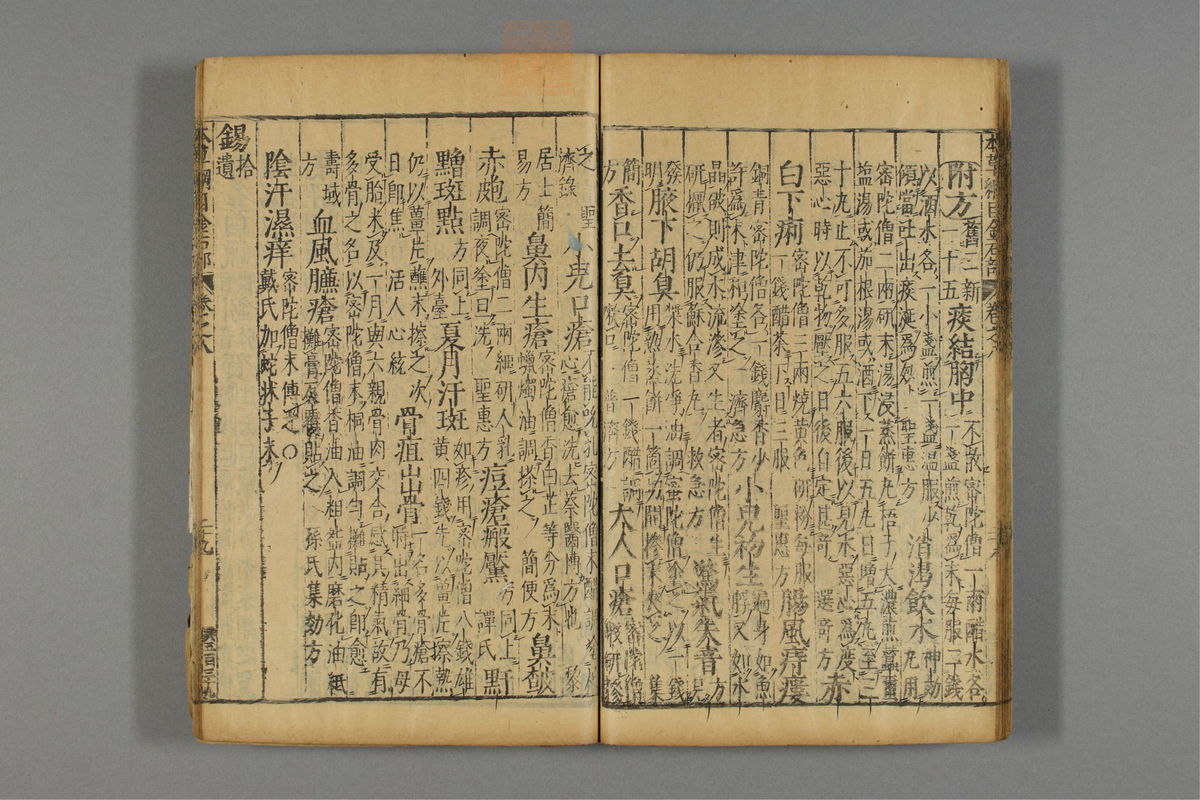 本草綱目金石部 卷之八
附方 舊三新一十五 痰結胸中 不散密陀僧一兩醋水各一盞煎乾爲末每服二錢
以酒水各一小盞煎一盞溫服少頃當吐出痰涎爲效 聖惠方 消渴飲水 神効丸用
密陀僧二兩研末湯浸蒸餅丸梧子大濃煎蠶繭塩湯或茄根湯或酒下一日五丸日增五丸至三
十丸止不可多服五六服後以見水惡心爲度惡心時以乾物壓之日後自定甚奇 選奇方 赤
白下痢 密陀僧三兩燒黃色研粉每服一錢醋茶下日三服 聖惠方 腸風痔瘻
銅青密陀僧各一錢麝香少許爲末津和塗之 濟急方 小兒初生 遍身如魚脬又如水
晶破則成水流滲又生者密陀僧生研摻之仍服蘇合香丸 救急方 驚氣失音 方見
發明 腋下胡臭 漿水洗淨油調密陀僧塗之以一錢用熱蒸餅一箇切開摻末夾之 集
簡方 香口去臭 密陀僧一錢醋調漱口 普濟方 大人口瘡 密陀僧煅研摻
之 聖濟錄 小兒口瘡 不能吮乳密陀僧末醋調塗足心瘡愈洗去蔡醫博方也 黎
居士簡易方 鼻內生瘡 密陀僧香白芷等分爲末蠟燭油調搽之 簡便方 鼻皶
赤皰 密陀僧二兩細研人乳調夜塗旦洗 聖惠方 痘瘡瘢黶 方同上 譚氏 䵟
黯斑點 方同上 外臺 夏月汗斑 如疹用密陀僧八錢雄黃四錢先以薑片搽熱
仍以薑片蘸末搽之次日即焦 活人心統 骨疽出骨 一名多骨瘡不時出細骨乃母
受胎未及一月與六親骨肉交合感其精氣故有多骨之名以密陀僧末桐油調勻攤貼之即愈
壽域方 血風臁瘡 密陀僧香油入粗盌內磨化油紙攤膏反覆貼之 孫氏集効方
陰汗濕痒 密陀僧末傅之○戴氏加蛇牀子末
錫 拾遺
本草綱目金石部 卷之八